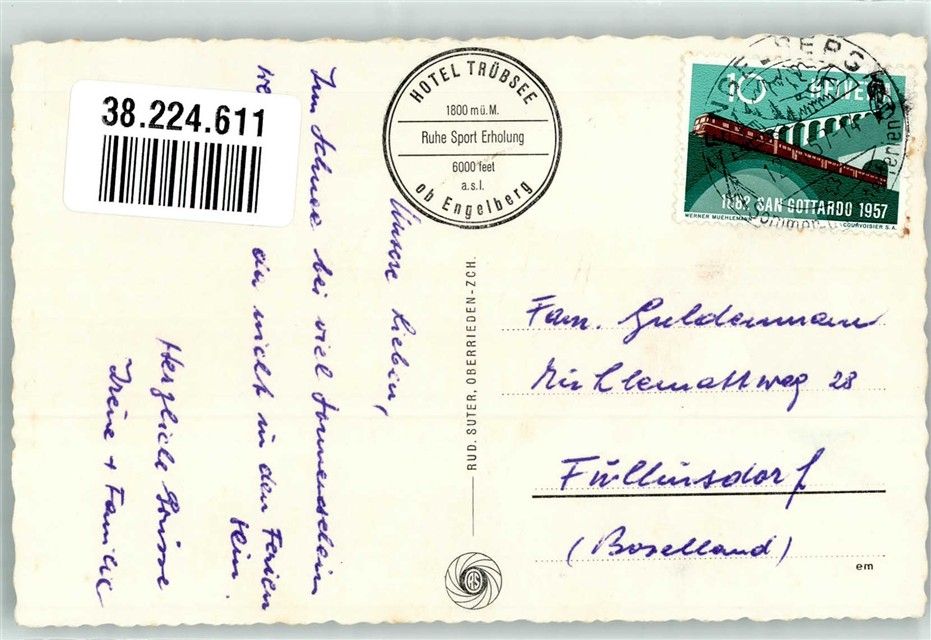 38.224.611
HOTEL TRÜBSEE
1800 m ü. M.
Ruhe Sport Erholung
6000 feet
a.s.l.
ob Engelberg
10 HELVETIA
1882 SAN GOTTARDO 1957
COURVOISIER S.A.
Unsere Lieben,
Zum Schnee bei viel Sonnenschein
ein nicht in den Ferien
sein.
Herzliche Grüsse
Irene + Familie
RUD. SUTER, OBERRIEDEN-ZCH.
Fam. Guldenmann
Mühlemattweg 28
Füllinsdorf
(Baselland)
em